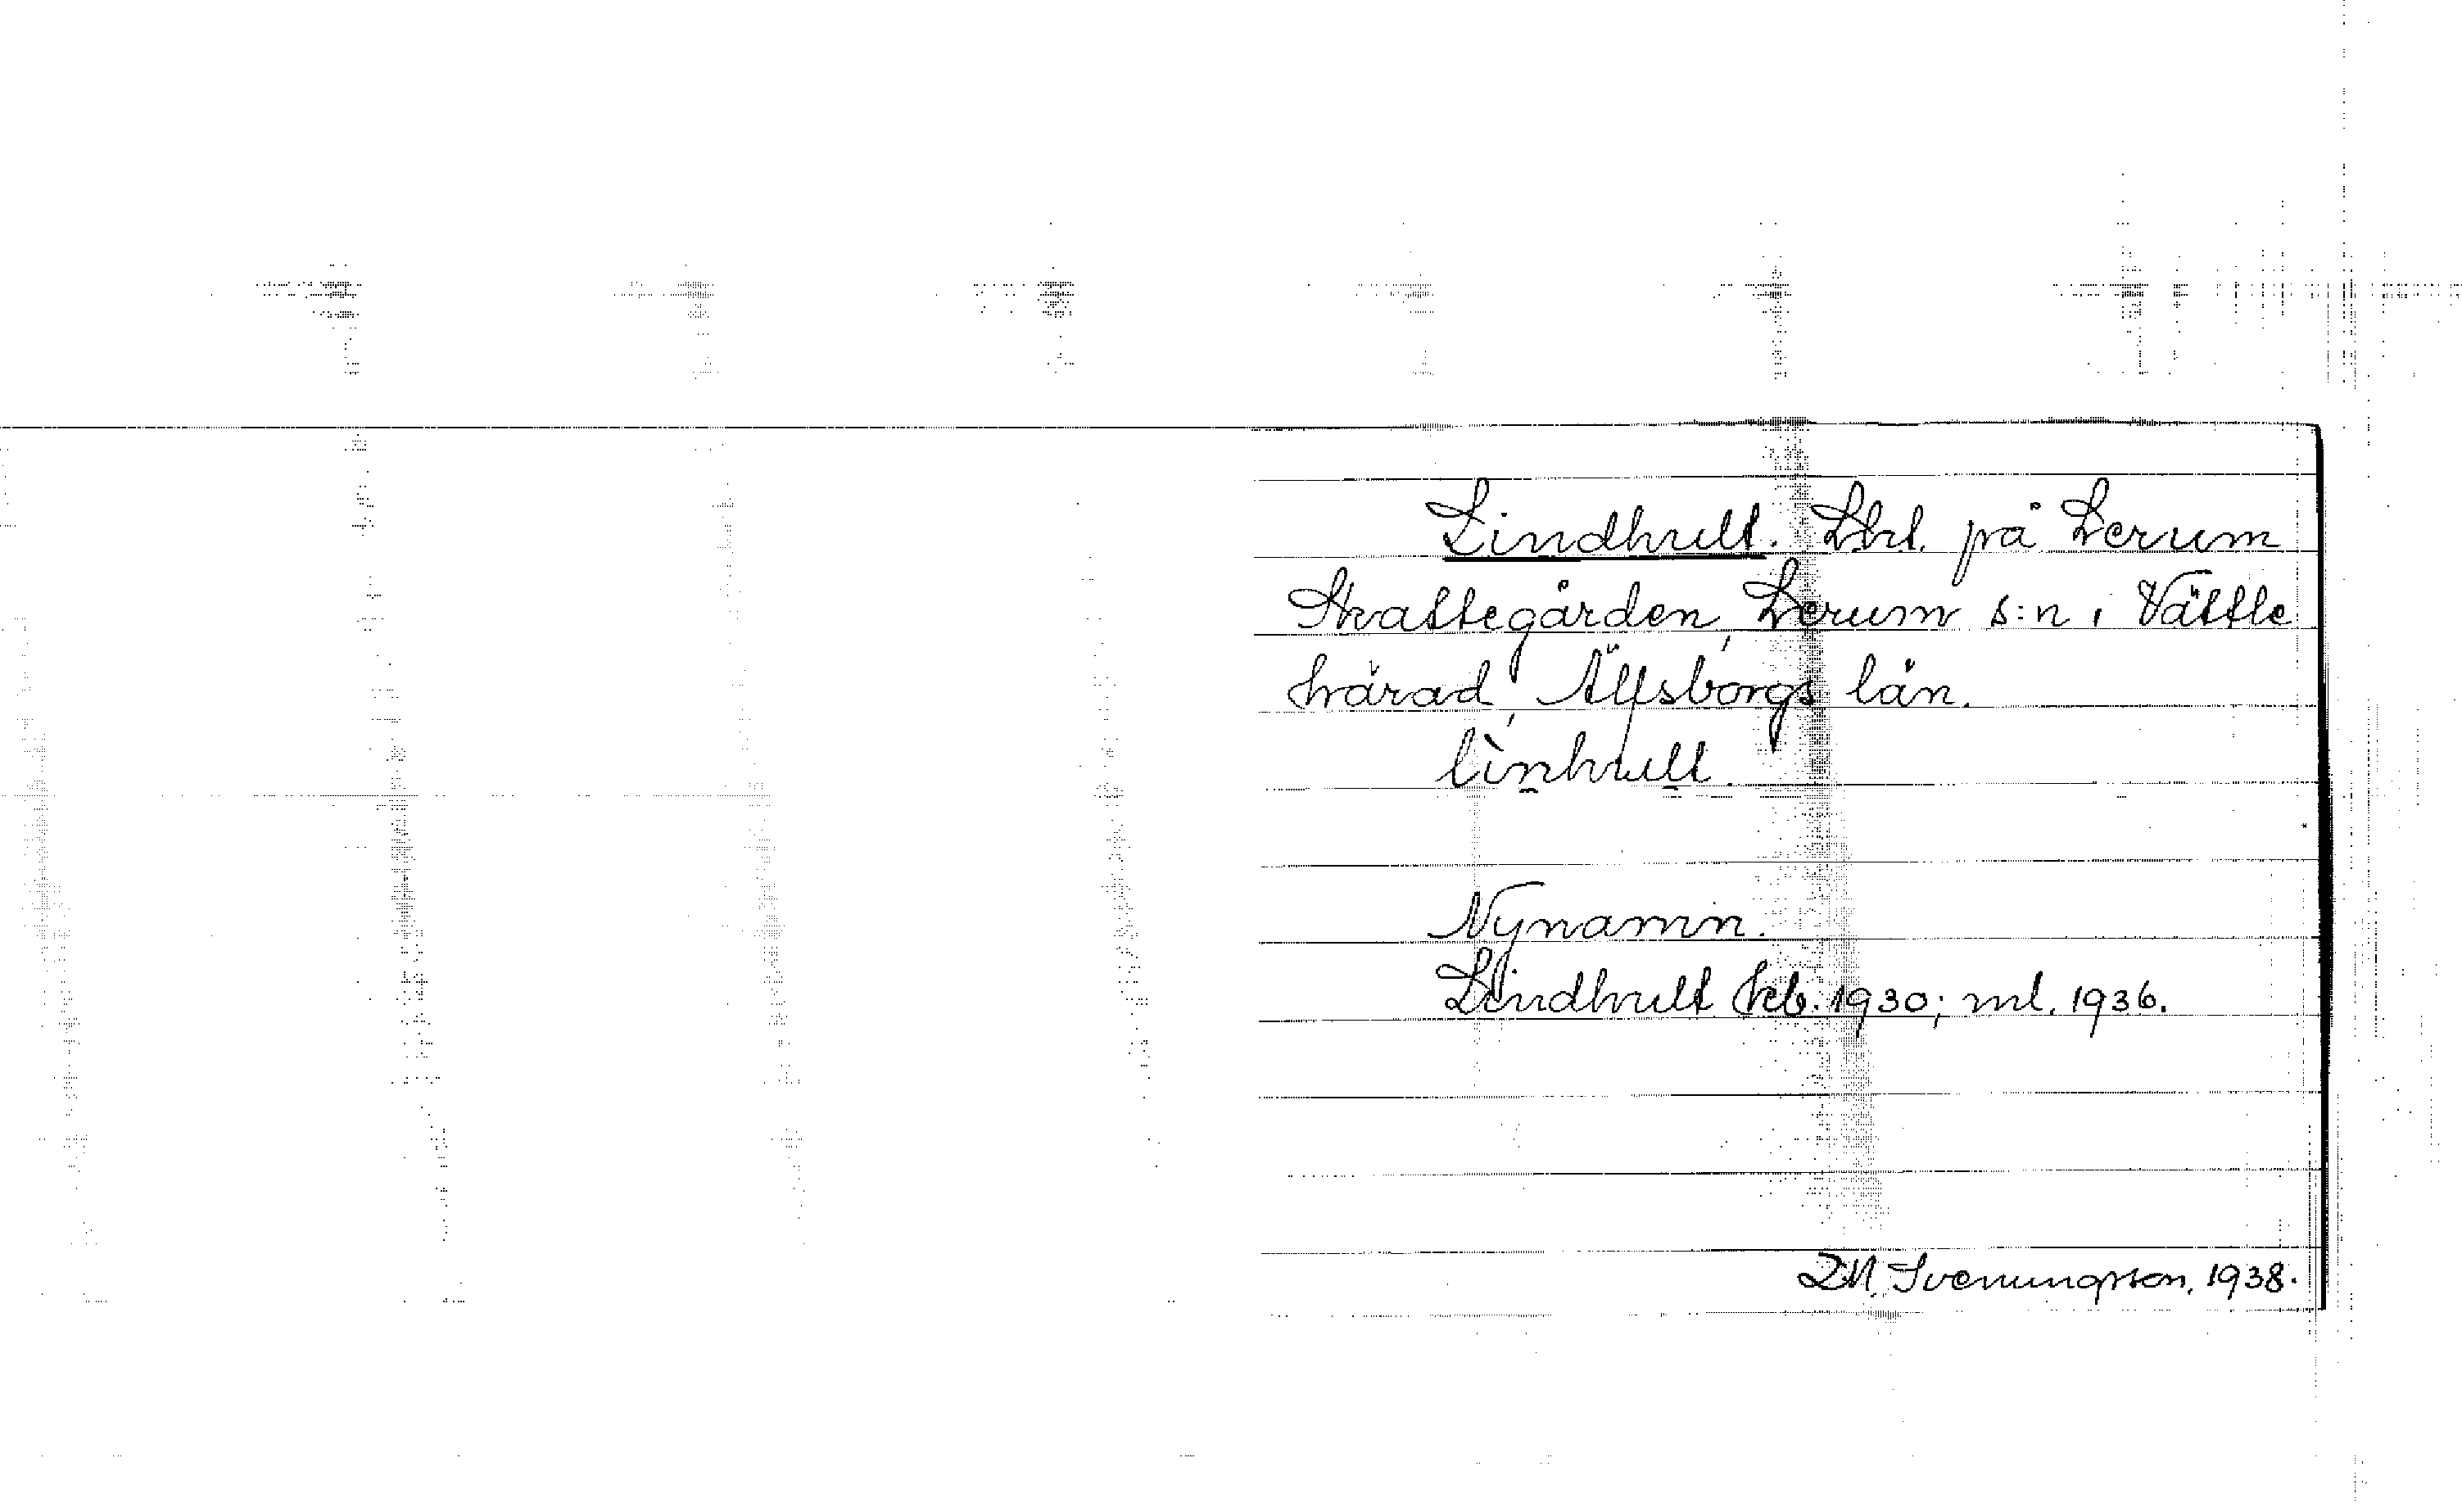 Lindhult. Lht. på Lerum
Skattegården, Lerum s:n i Vättle
härad, Älfsborgs län.
lìn̯hu̯lt.
Nynamn.
Lindhult kb. 1930; ml. 1936.
D.N. Svenungsson, 1938.